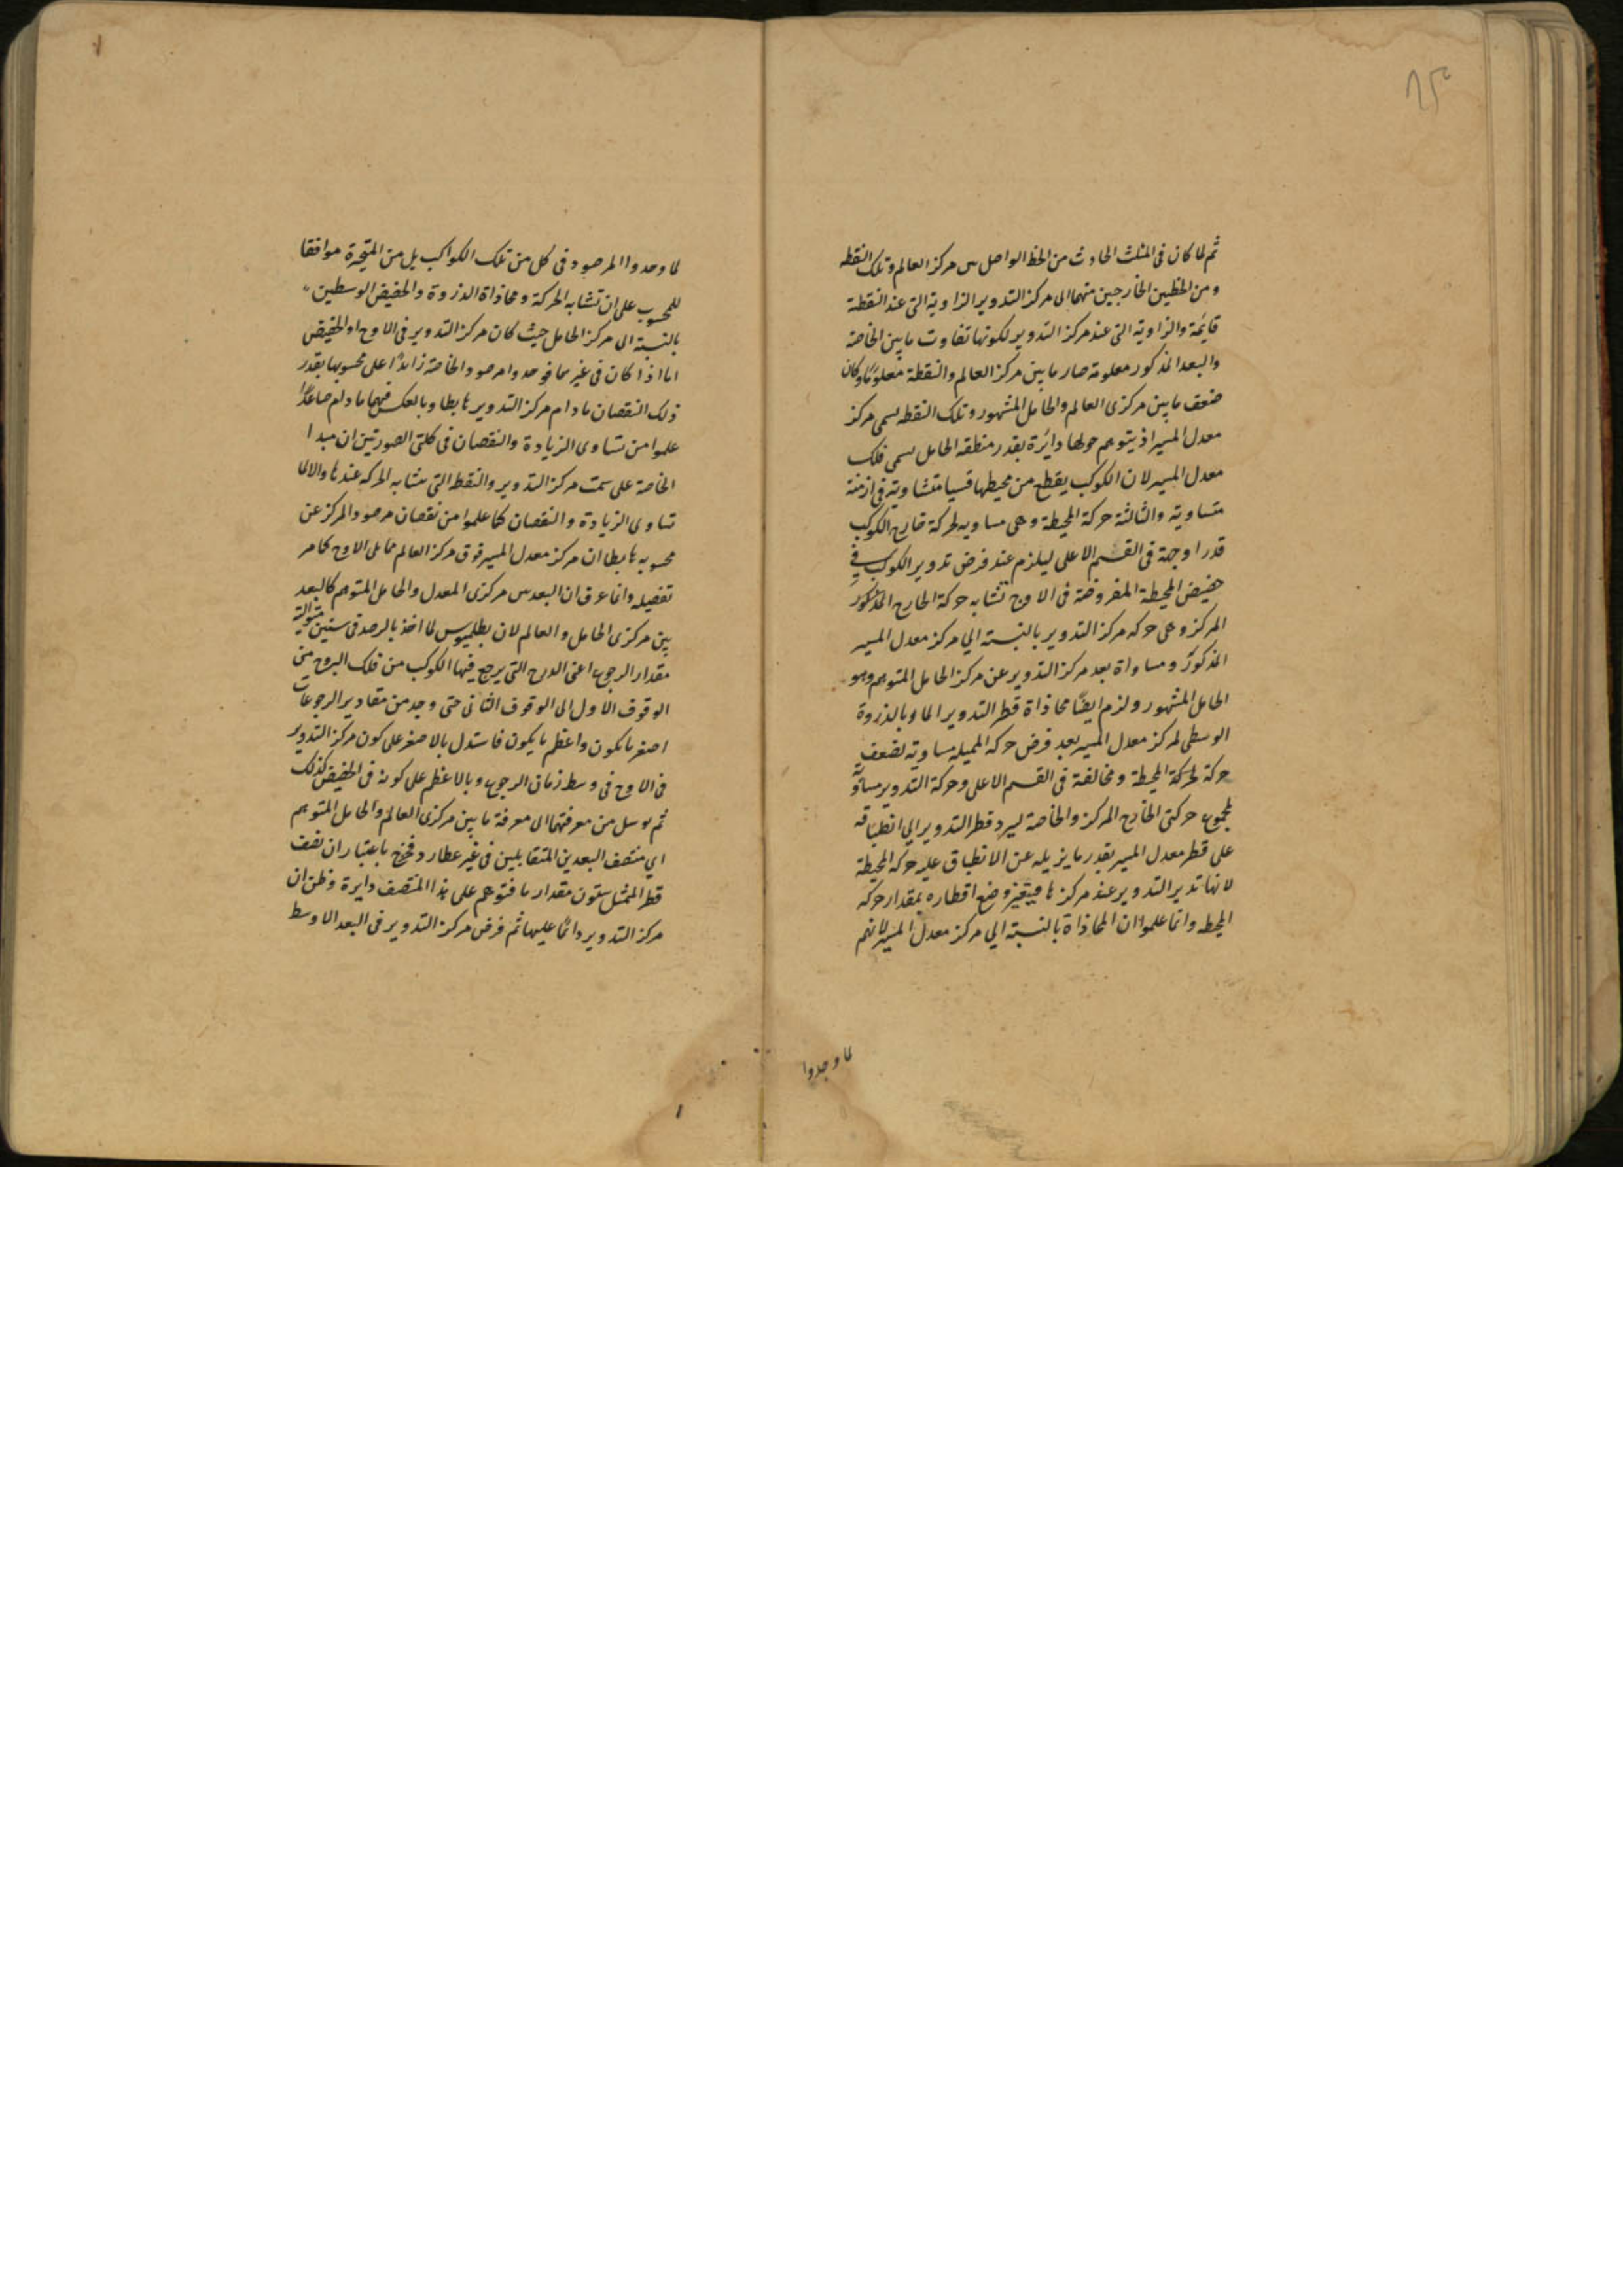 ثم لما كان فى المثلث الحادث من الخط الواصل بين مركز العالم وتلك النقطه
ومن الخطين الخارجين منهما الى مركز التدوير الزاوية التى عند النقطة
قايمة والزاوية التى عند مركز التدوير لكونها تفاوت ما بين الخاصة
والبعد المذكور معلومة صار ما بين مركز العالم والنقطة معلومًا وكان
ضعف ما بين مركزى العالم والحامل المشهور وتلك النقطه يسمى مركز
معدل المسير اذ يتوهم حولها دائرة بقدر منطقه الحامل يسمى فلك
معدل المسير لان الكوكب يقطع من محيطها قسيا متشاوية فى ازمنة
متساوية والثالثة حركة المحيطة وهى مساويه لحركة خارج الكوكب
قدرا وجهة فى القسم الاعلى ليلزم عند فرض تدوير الكوكب فى
حضيض المحيطة المفروضة فى الاوج تشابه حركة الخارج المذكور
المركز وهى حركه مركز التدوير بالنسبته الي مركز معدل المسير
المذكور ومساواة بعد مركز التدوير عن مركز الحامل المتوهم وهو
الحامل المشهور ولزم ايضًا محاذاة قطر التدوير المار بالذروة
الوسطى لمركز معدل المسير بعد فرض حركه المميله مساوية لضعف
حركة لحركة المحيطة ومخالفة فى القسم الاعلى وحركة التدوير مساوية
لمجموع حركتى الخارج المركز والخاصة ليرد قطر التدوير الي انطباقه
على قطر معدل المسير بقدر ما يزيله عن الانطباق عليه حركه المحيطة
لانها تدير التدوير عند مركزها فيتغير وضع اقطاره بمقدار حركه
المحيطه وانما علموا ان المحاذاة بالنسبة الي مركز معدل المسير لانهم
لما وجدوا
لما وجدوا المرصود فى كل من تلك الكواكب بل من المتحيرة موافقا
للمحسوب على ان تشابه الحركة ومحاذاة الذروة والحضيض الوسطين
بالنسبة الى مركز الحامل حيث كان مركز التدوير فى الاوج او الحضيض
اما اذا كان فى غيرهما فوجدوا مرصود الخاصة زائدًا على محسوبها بقدر
ذلك النقصان مادام مركز التدوير هابطا وبالعكس فيهما مادام صاعدًا
علموا من تساوى الزيادة والنقصان فى كلتى الصورتين ان مبدا
الخاصة على سمت مركز التدوير والنقطة التى تشابه الحركه عندها والا لما
تساوى الزيادة والنقصان كما علموا من نقصان مرصود المركز عن
محسوبه هابطا ان مركز معدل المسير فوق مركز العالم مما يلى الاوج كما مر
تفصيله وانما عرف ان البعد بين مركزى المعدل والحامل المتوهم كالبعد
بين مركزى الحامل والعالم لان بطلميوس لما اخذ بالرصد فى سنين متوالية
مقدار الرجوع اعنى الدرج التى يرجع فيها الكوكب من فلك البروج من
الوقوف الاول الى الوقوف الثانى حتى وجد من مقادير الرجوعات
اصغر ما يكون واعظم ما يكون فاستدل بالاصغر على كون مركز التدوير
فى الاوج فى وسط زمان الرجوع وبالاعظم على كونه فى الحضيض كذلك
ثم توسل من معرفتهما الى معرفة ما بين مركزى العالم والحامل المتوهم
اي منتصف البعدين المتقابلين فى غير عطارد فخرج باعتبار ان نصف
قطر الممثل ستون مقدار ما فتوهم على هذا المنتصف دايرة وظن ان
مركز التدوير دائمًا عليها ثم فرض مركز التدوير فى البعد الاوسط